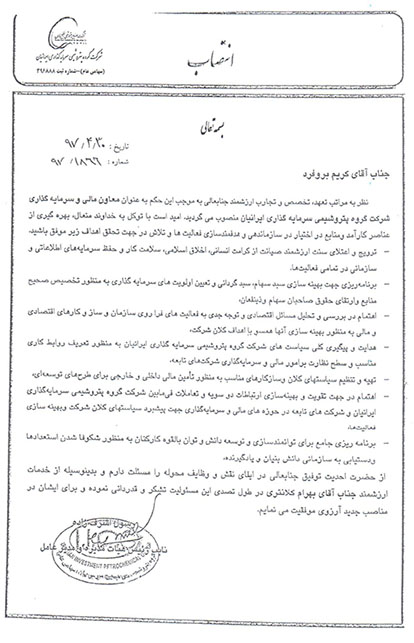 شرکت گروه پتروشیمی سرمایه گذاری ایرانیان
(سهامی عام) - شماره ثبت ۴۹۶۸۸۸
انتصاب
بسمه تعالی
تاریخ: ۹۷/۴/۳۰
شماره: ۹۷/۱۸۶۶
جناب آقای کریم بروفرد
نظر به مراتب تعهد، تخصص و تجارب ارزشمند جنابعالی به موجب این حکم به عنوان معاون مالی و سرمایه گذاری
شرکت گروه پتروشیمی سرمایه گذاری ایرانیان منصوب می گردید. امید است با توکل به خداوند متعال، بهره گیری از
عناصر کارآمد ومنابع در اختیار در سازماندهی و هدفمندسازی فعالیت ها و تلاش در جهت تحقق اهداف زیر موفق باشید.
- ترویج و اعتلای سنت ارزشمند صیانت از کرامت انسانی، اخلاق اسلامی، سلامت کار و حفظ سرمایه‌های اطلاعاتی و
سازمانی در تمامی فعالیت‌ها.
- برنامه‌ریزی جهت بهینه سازی سبد سهام، سبد گردانی و تعیین اولویت های سرمایه گذاری به منظور تخصیص صحیح
منابع وارتقای حقوق صاحبان سهام وذینفعان،
- اهتمام در بررسی و تحلیل مسائل اقتصادی و توجه جدی به فعالیت های فرا روی سازمان و ساز و کارهای اقتصادی
و مالی به منظور بهینه سازی آنها همسو با اهداف کلان شرکت،
- هدایت و پیگیری کلی سیاست های شرکت گروه پتروشیمی سرمایه گذاری ایرانیان به منظور تعریف روابط کاری
مناسب و سطح نظارت برامور مالی و سرمایه‌گذاری شرکت‌های تابعه.
- تهیه و تنظیم سیاستهای کلان وسازکارهای مناسب به منظور تأمین مالی داخلی و خارجی برای طرح‌های توسعه‌ای،
- اهتمام در جهت تقویت و بهینه‌سازی ارتباطات دو سویه و تعاملات فی‌مابین شرکت گروه پتروشیمی سرمایه‌گذاری
ایرانیان و شرکت های تابعه در حوزه های مالی و سرمایه‌گذاری جهت پیشبرد سیاستهای کلان شرکت وبهینه سازی
فعالیت‌ها.
- برنامه ریزی جامع برای توانمندسازی و توسعه دانش و توان بالقوه کارکنان به منظور شکوفا شدن استعدادها
ودستیابی به سازمانی دانش بنیان و یادگیرنده.
از حضرت احدیت توفیق جنابعالی در ایفای نقش و وظایف محوله را مسئلت دارم و بدینوسیله از خدمات
ارزشمند جناب آقای بهرام کلانتری در طول تصدی این مسئولیت تشکر و قدردانی نموده و برای ایشان در
مناصب جدید آرزوی موفقیت می نمایم.
رسول اشرف زاده
نایب رئیس هیات مدیره و مدیر عامل
INVESTMENT PETROCHEMICAL